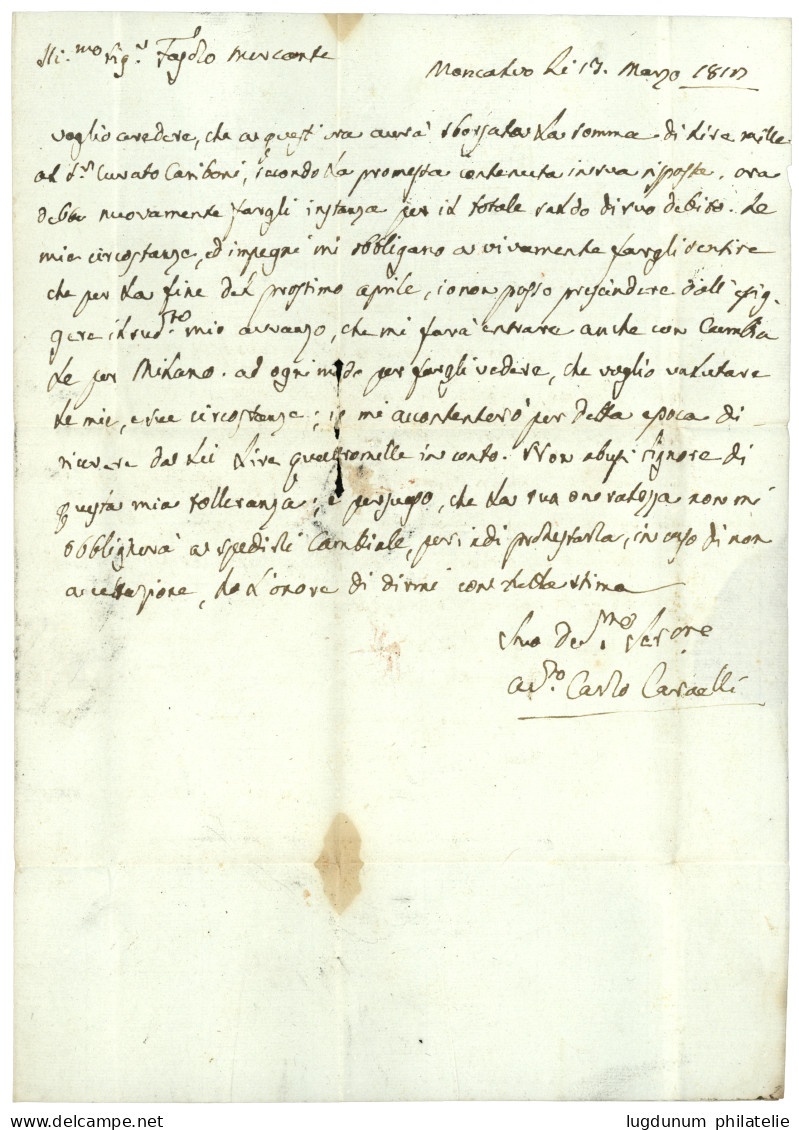 Ill.mo sig.r Fagolo Mercante
Moncalvo li 17. Marzo 1810
voglio credere, che a quest'ora avrà sborsata la somma di lire mille
al S.r Curato Cariboni, secondo la promessa contenuta in sua risposta. ora
debbo nuovamente fargli instanza per il totale saldo di suo debito. le
mie circostanze, ed impegni mi obbligano a vivamente fargli sentire
che per la fine del prossimo aprile, io non posso prescindere dall' esig-
gere il sud.to mio avanzo, che mi farà entrare anche con Cambia
le per Milano. ad ogni modo per fargli vedere, che voglio valutare
le mie, e sue circostanze; io mi accontenterò per detta epoca di
ricevere da lei lire quattromille in conto. Non abusi signore di
questa mia tolleranza; e persuaso, che la sua onoratezza non mi
obbligherà a spedirli Cambiale, per indi protestarla, in caso di non
accettazione, ho l'onore di dirmi con tutta stima
Suo De.mo Ser.ore
Carlo
lugdunum philatelie